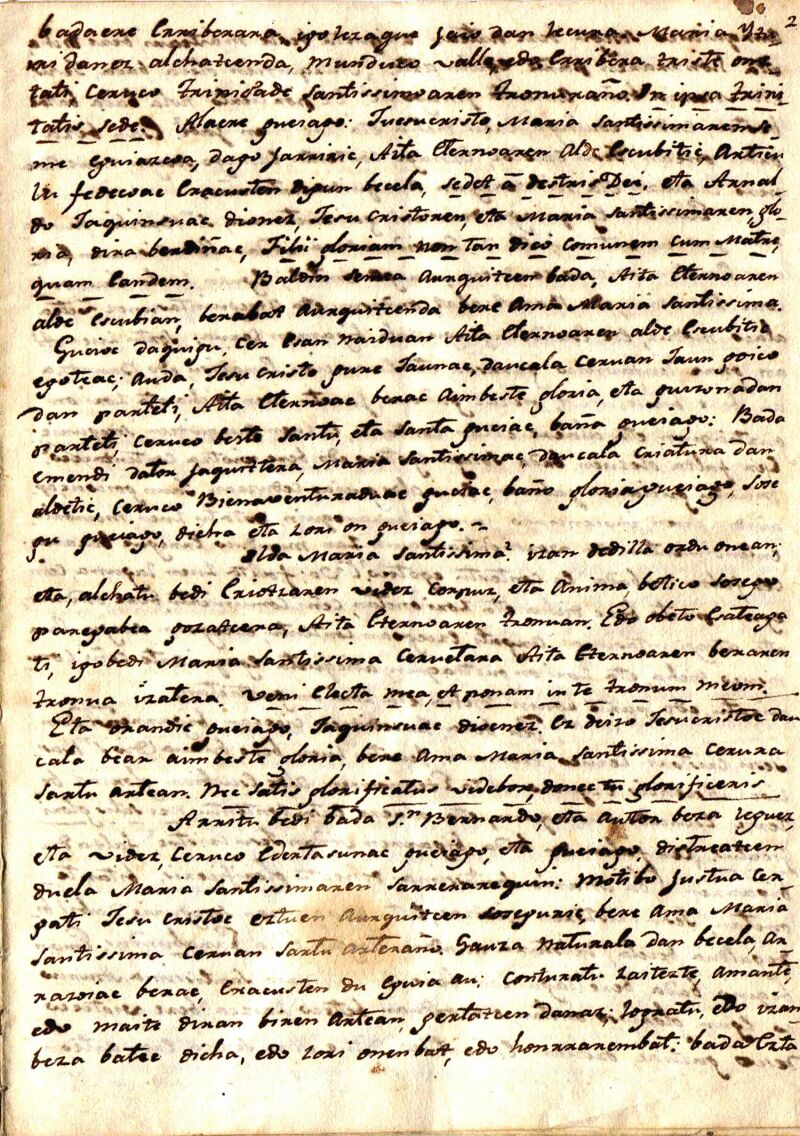 2
badaere Erriberara, igo lezaque jaio dan lecura Maria Ytu
rri danez alchatcenda, munduco valle, edo Erribera triste one
tati, Ceruco trinidade Santissimoaren tronuraño. In ipsa trini
tatis sede. Alaere gueiago: Jesucristo, Maria Santissimaren se
me Eguiazcoa, dago jarriric, Aita Eternoaren Alde Escubitic, Articu
lu fedecoac Eracusten digun becela, sedet â destris Dei, eta Arnal
do Jaquinsuac dionez, Jesu Cristoren, eta Maria Santissimaren glo
ria, dira berdiñac, Filii gloriam non tan dico comunem cum Matre,
quam Eandem. Baldin semea Aurquitcen bada, Aita Eternoaren
alde Escubian, berabat Aurquitcenda bere Ama Maria Santissima.
Gucioc daquigu, cer Esan naiduan Aita Eternoaren alde Escubitic
egoteac; Auda, Jesu Cristo gure Jaunac, daucala Ceruan Jaun goico
dan partetì, Aita Eternoac berac aimbeste gloria, eta guizonadan
partetì, Ceruco beste Santu, eta Santa guciac, baña gueiago: Bada
emendi dator jaquitera, Maria Santissimac, daucala criatura dan
aldetic, Ceruco Bienaventuraduac guciac, baño gloria gueiago, sose
gu gueiago, dicha eta zori on gueiago.
Alda Maria Santissima: izan dedilla ordu onean;
eta, alchatu bedi Eriotzaren videz Corpuz, eta Anima, betico sosegu
paregabea gozatcera, Aita Eternoaren tronuan. Edo obeto Esateaga
ti, igo bedi Maria Santissima Ceruetara Aita Eternoaren beraren
tronua izatera. Veni Electa mea, et ponam in te tronum meum.
Eta orandic gueiago, Jaquinsuac dioenez. Ez deizo Jesucristoc dau
cala bear aimbeste gloria, bere Ama Maria Santissima Cerura
Sartu artean. Nec satis glorificatus videbor, donec tu glorificeris
Arritu bedi bada S.n Bernardo, eta Autor beza leguez,
eta videz, Ceruco Edertasunac gueiago, eta gueiago, distreatcen
duela Maria Santissimaren Sarrerarequin: Motibo justua Cer
gati Jesu Cristoc eztuen Aurquitcen soseguric, bere Ama Maria
Santissima Ceruan Sartu Arteraño. Gauza naturala dan becela, Ar
razoiac berac, Eracusten du Eguia au; Conturatu zaitezte, Amante,
edo maite diran biren Artean, gertatcen danaz; logratu, edo izan
beza batec dicha, edo zori onenbat, edo honrrarembat: bada Ezta